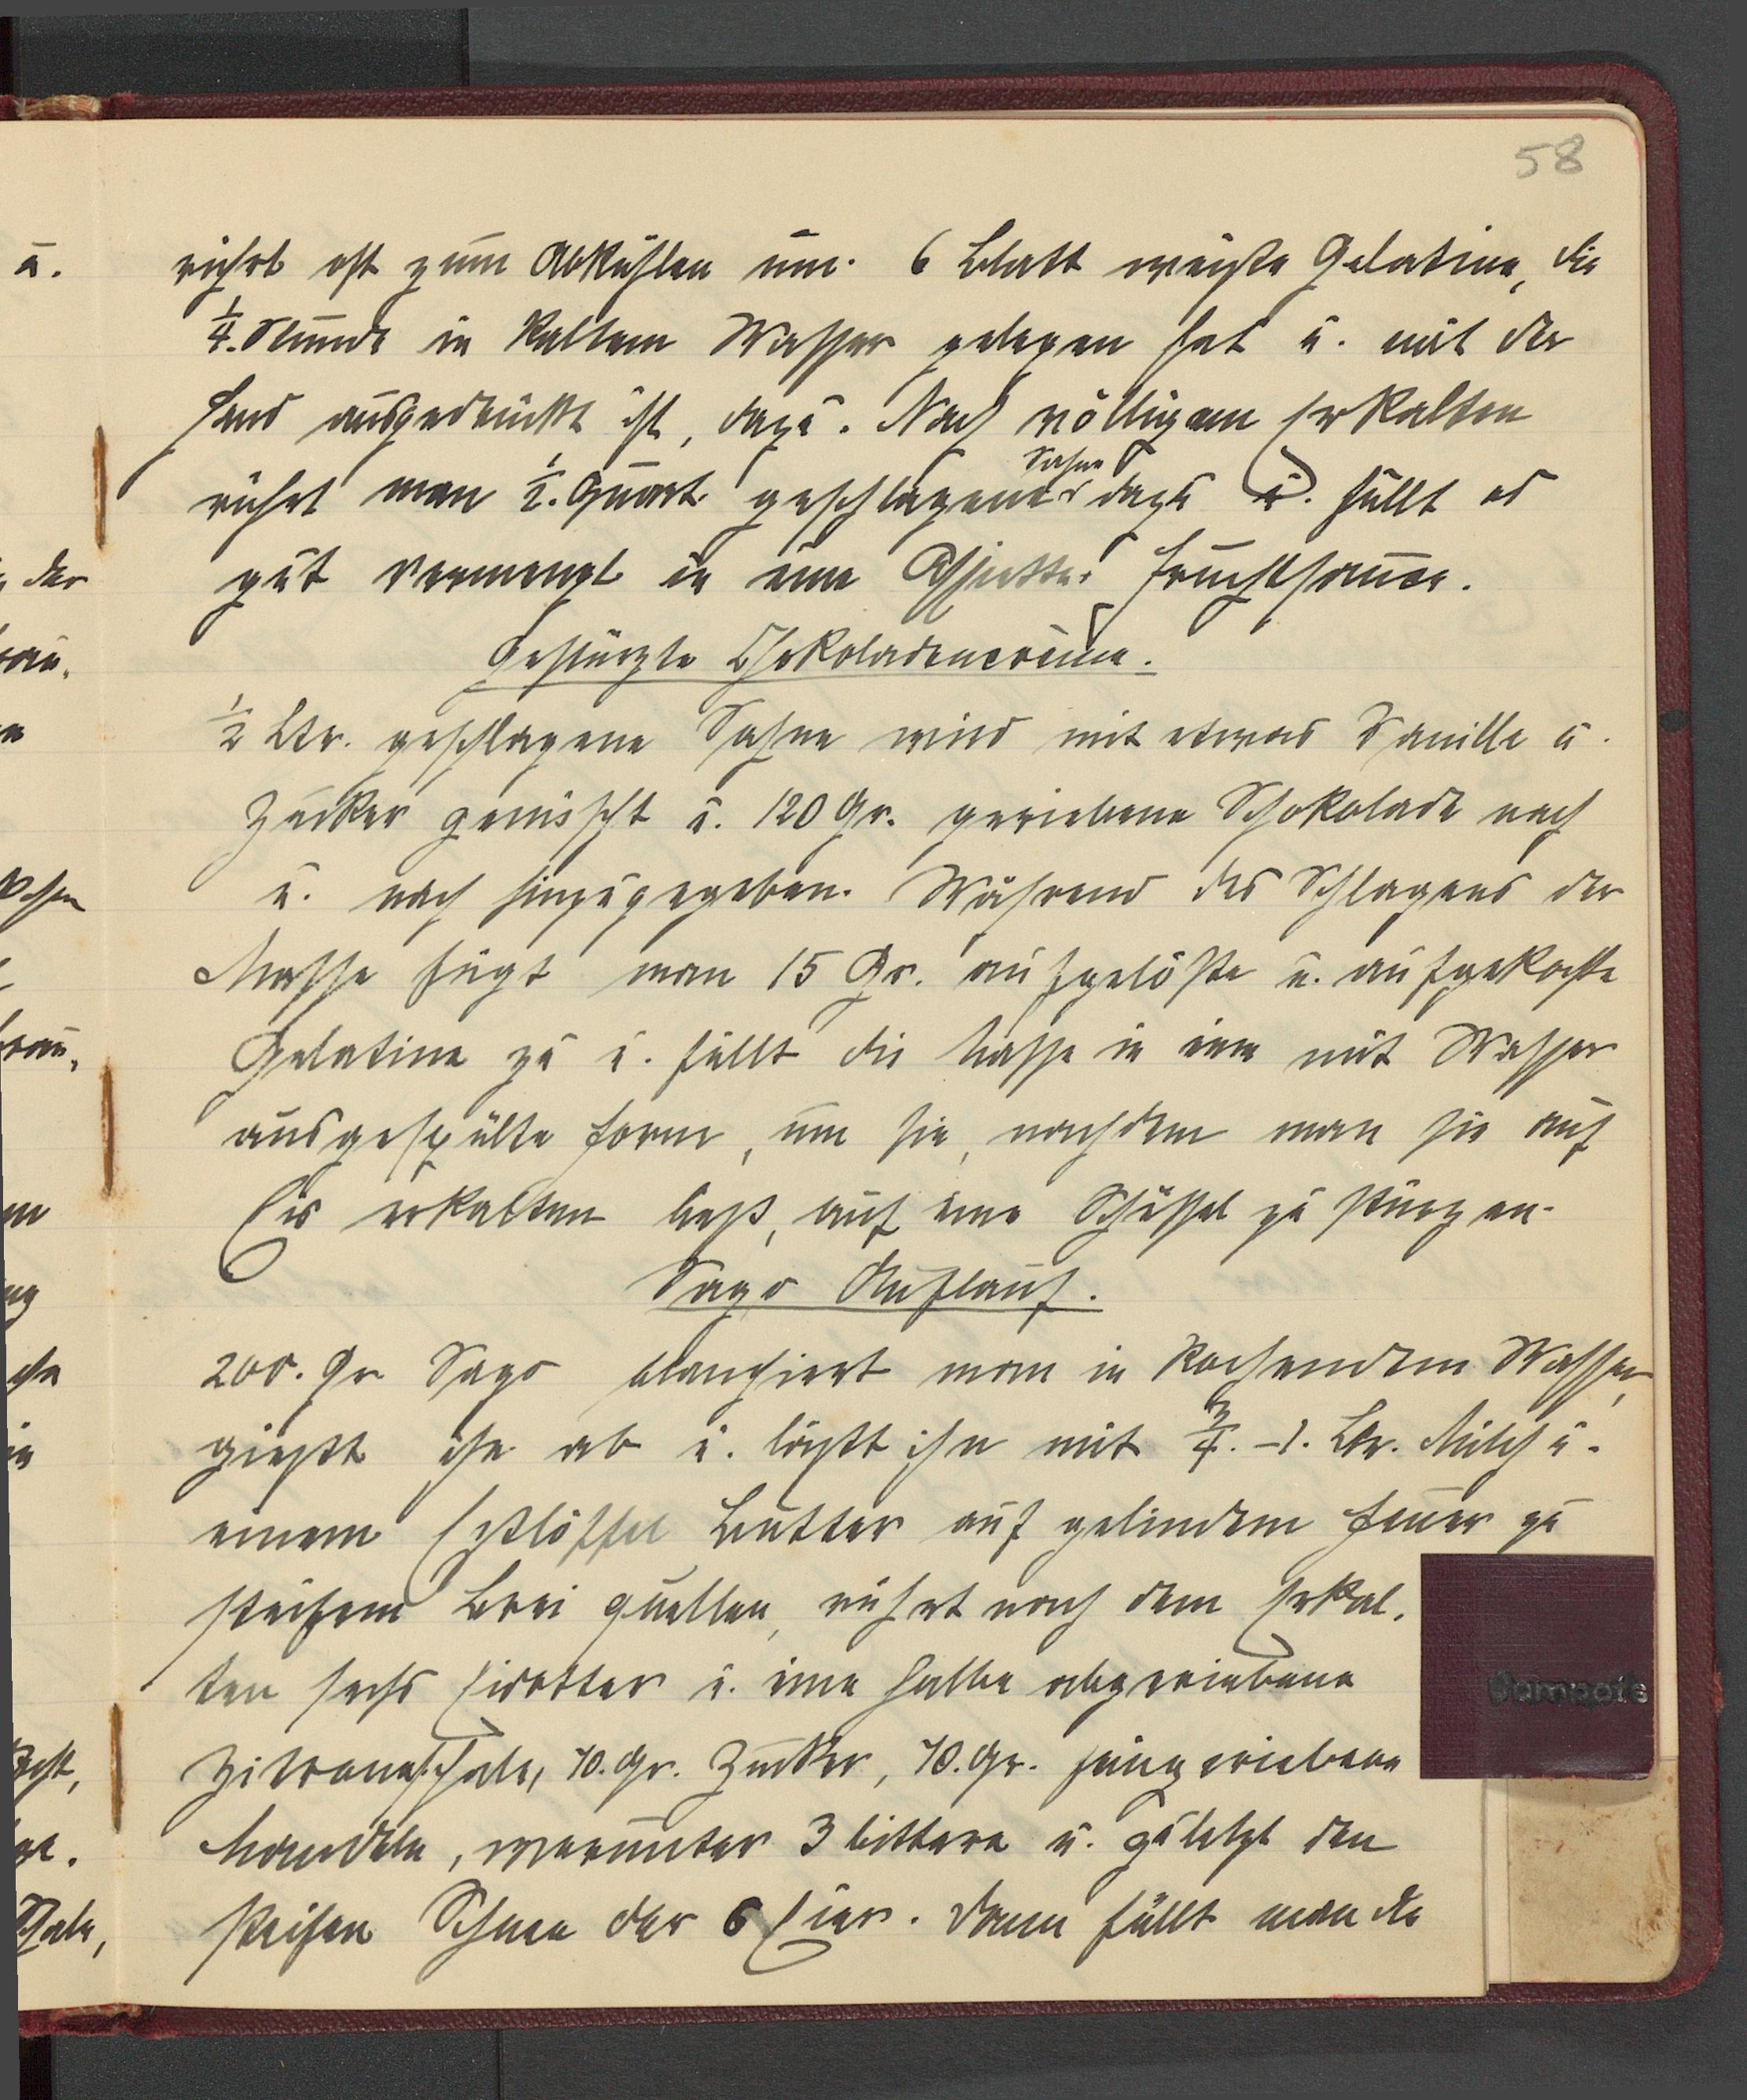 58
rührt oft zum Abkühlen um. 6 Blatt weiße Gelatine, die
1/4. Stunde in kaltem Wasser gelegen hat u. mit der
Hand ausgedrückt ist, dazu. Nach völligem Erkalten
rührt man 1/2. Quart geschlagene Sahne dazu u. füllt es
gut vermengt in eine Assiette. Fruchtsauce.
Gestürzte Schokoladencrème.
1/2 Ltr. geschlagene Sahne wird mit etwas Vanille u.
Zucker gemischt u. 120 Gr. geriebene Schokolade nach
u. nach hinzugegeben. Während des Schlagens der
Masse fügt man 15 Gr. aufgelöste u. aufgekochte
Gelatine zu u. füllt die Masse in eine mit Wasser
ausgespülte Form, um sie, nachdem man sie auf
Eis erkalten ließ, auf eine Schüssel zu stürzen.
Sago Auflauf.
200. Gr Sago blanchiert man in kochendem Wasser,
gießt ihn ab u. läßt ihn mit 3/4. -1. Ltr. Milch u.
einem Eßlöffel Butter auf gelindem Feuer zu
steifem Brei quellen, rührt nach dem Erkal.
ten sechs Eidotter u. eine halbe abgeriebene
Zitronenschale, 70. Gr. Zucker, 70. Gr. feingeriebene
Mandeln, worunter 3 bittere u. zuletzt den
steifen Schnee der 6 Eier. Dann füllt man die
Compots